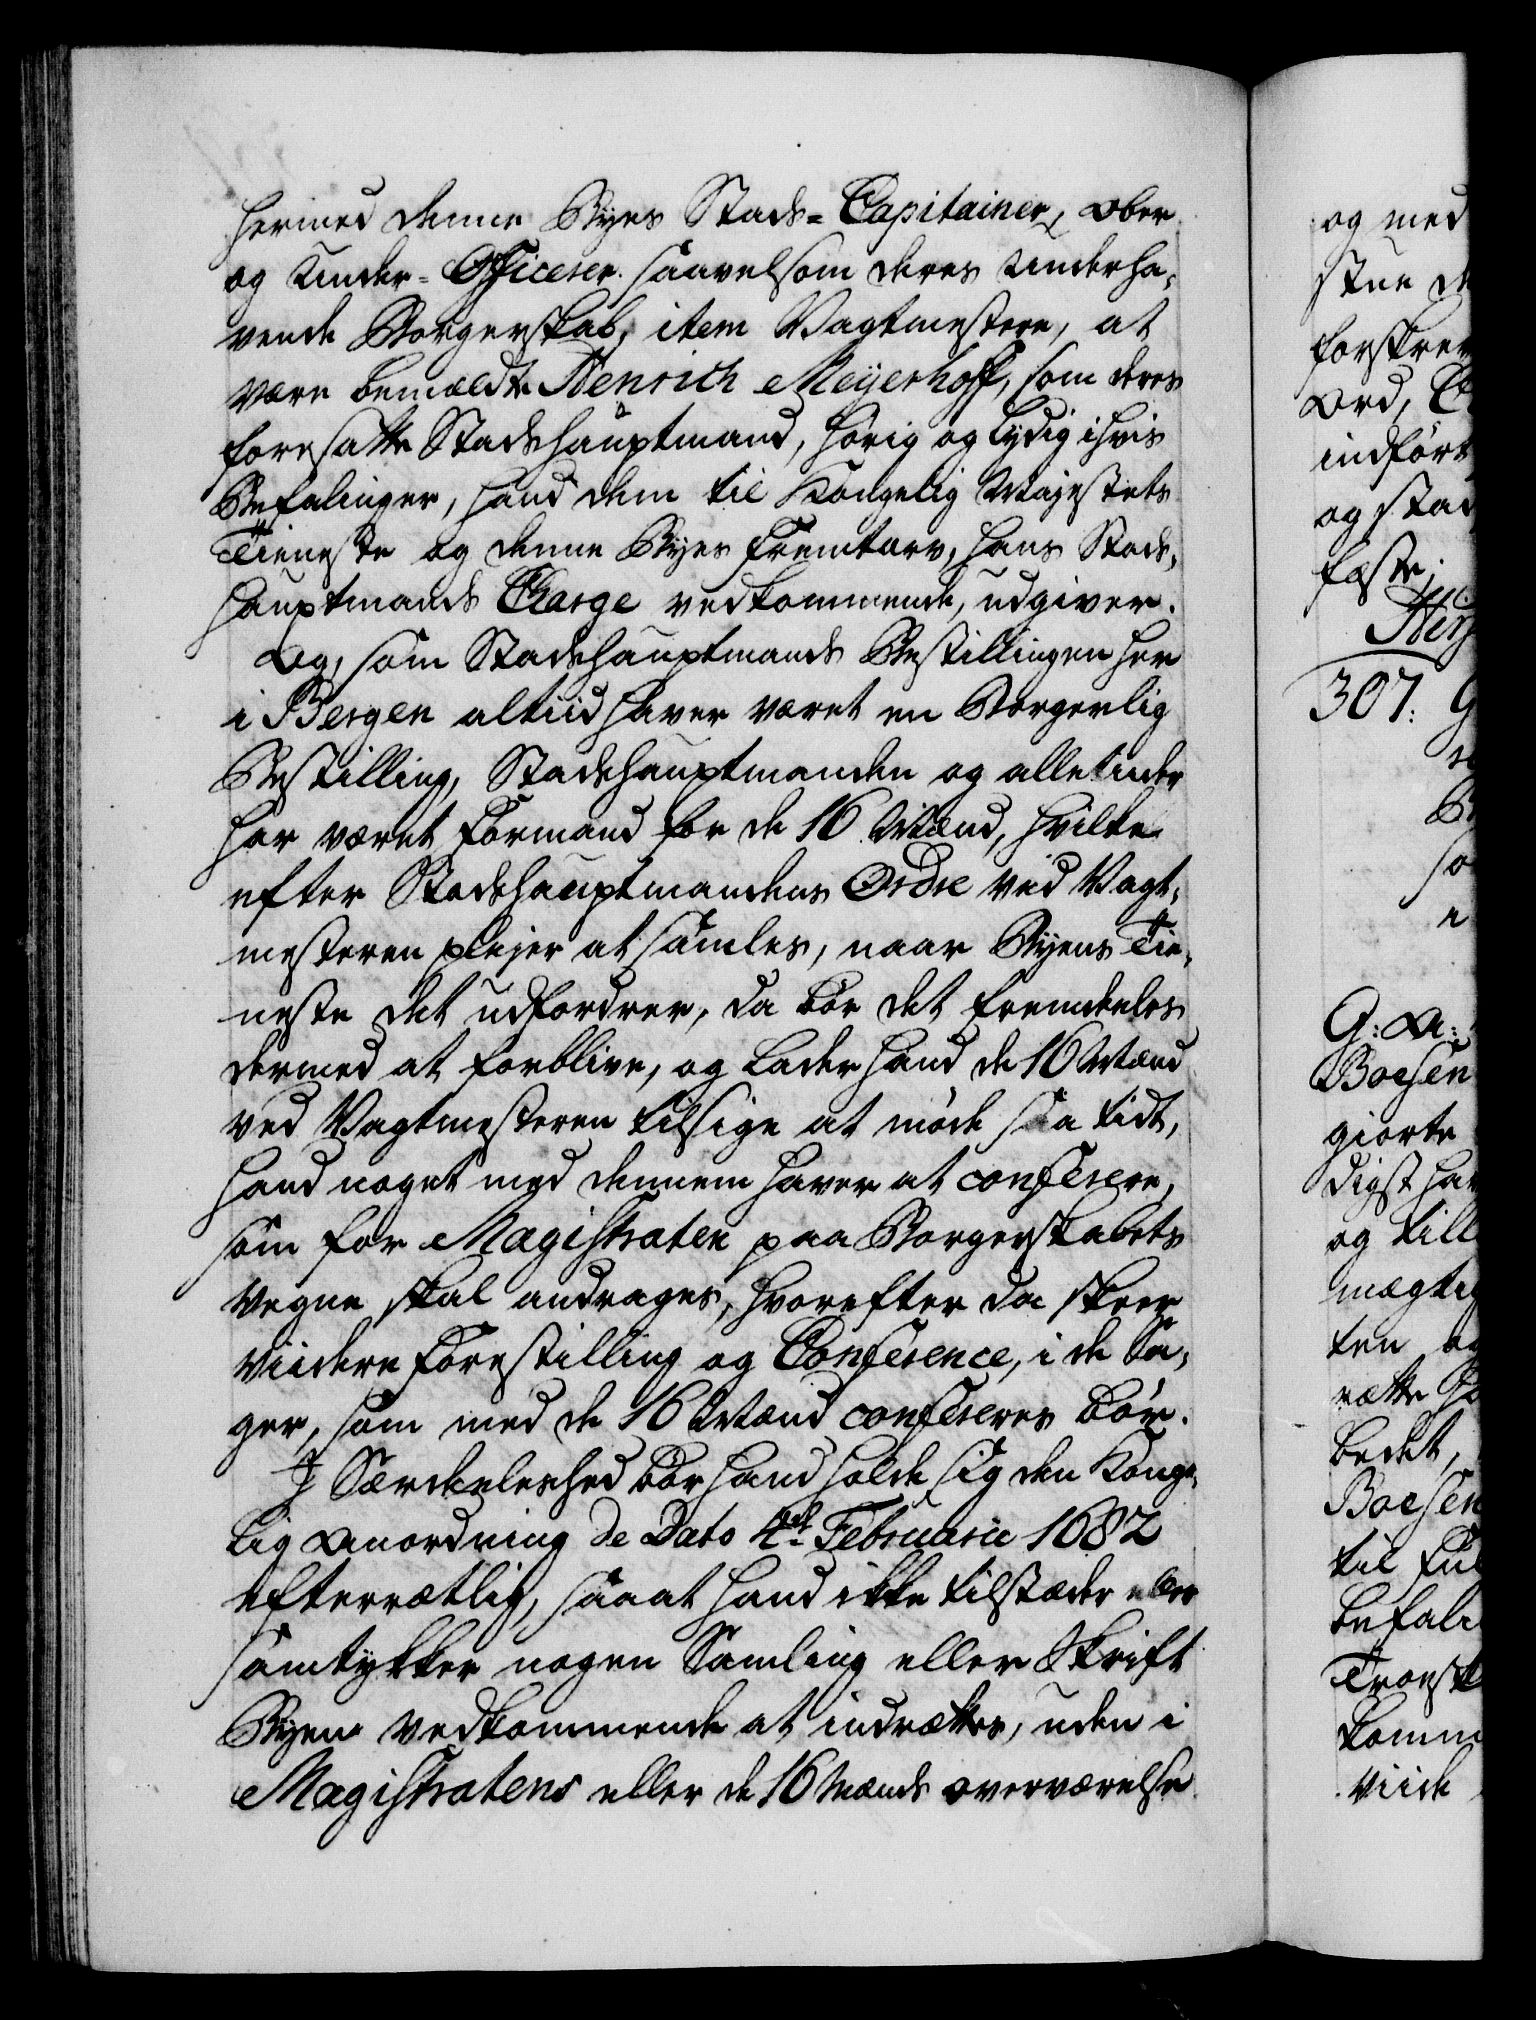 hermed denne Byes Stads-Capitainer, Ober
og Under-Officerer saavelsom deres Underha-
vende Borgerskab, item Vagtmestere, at
være bemældte Henrich Meyerhoff, som deres
foresatte Stadshauptmand, hørig og lydig i hvis
Befalinger, hand dem til Kongelig Mayestets
Tieneste og denne Byes Fremtarv, hans Stads-
hauptmands Charge vedkommende, udgiver.
Og, som Stadshauptmands Bestillingen her
i Bergen altiid haver været en Borgerlig
Bestilling, Stadshauptmanden og alletiider
har været Formand for de 16 Mænd, hvilke
efter Stadshauptmandens Ordre ved Vagt-
mesteren plejer at samles, naar Byens Tie-
neste det udfordrer, da bør det fremdeeles
dermed at forblive, og lader hand de 16 Mænd
ved Vagtmesteren tilsige at møde saa tidt,
hand noget med dennem haver at conferere,
som for Magistraten paa Borgerskabets
Vegne skal andrages, hvorefter da skeer
viidere Forestilling og Conference, i de Sa-
ger, som med de 16 Mænd confereres bør.
I Særdeeleshed bør hand holde sig den Konge-
lig Anordning de Dato 4de Februarii 1682
efterrætlig, saa at hand ikke tilstæder eller
samtykker nogen Samling eller Skrift
Byen vedkommende at indrættes, uden i
Magistratens eller de 16 Mænds overværelse
og med
stue
Ord,
indført
og stad
fæste.
307.
G: A:
Boesen
giorte
digst har
og till
mægtig
ten og
rætte
bedet,
Boesen
til
befal
Troesk
komm
viide